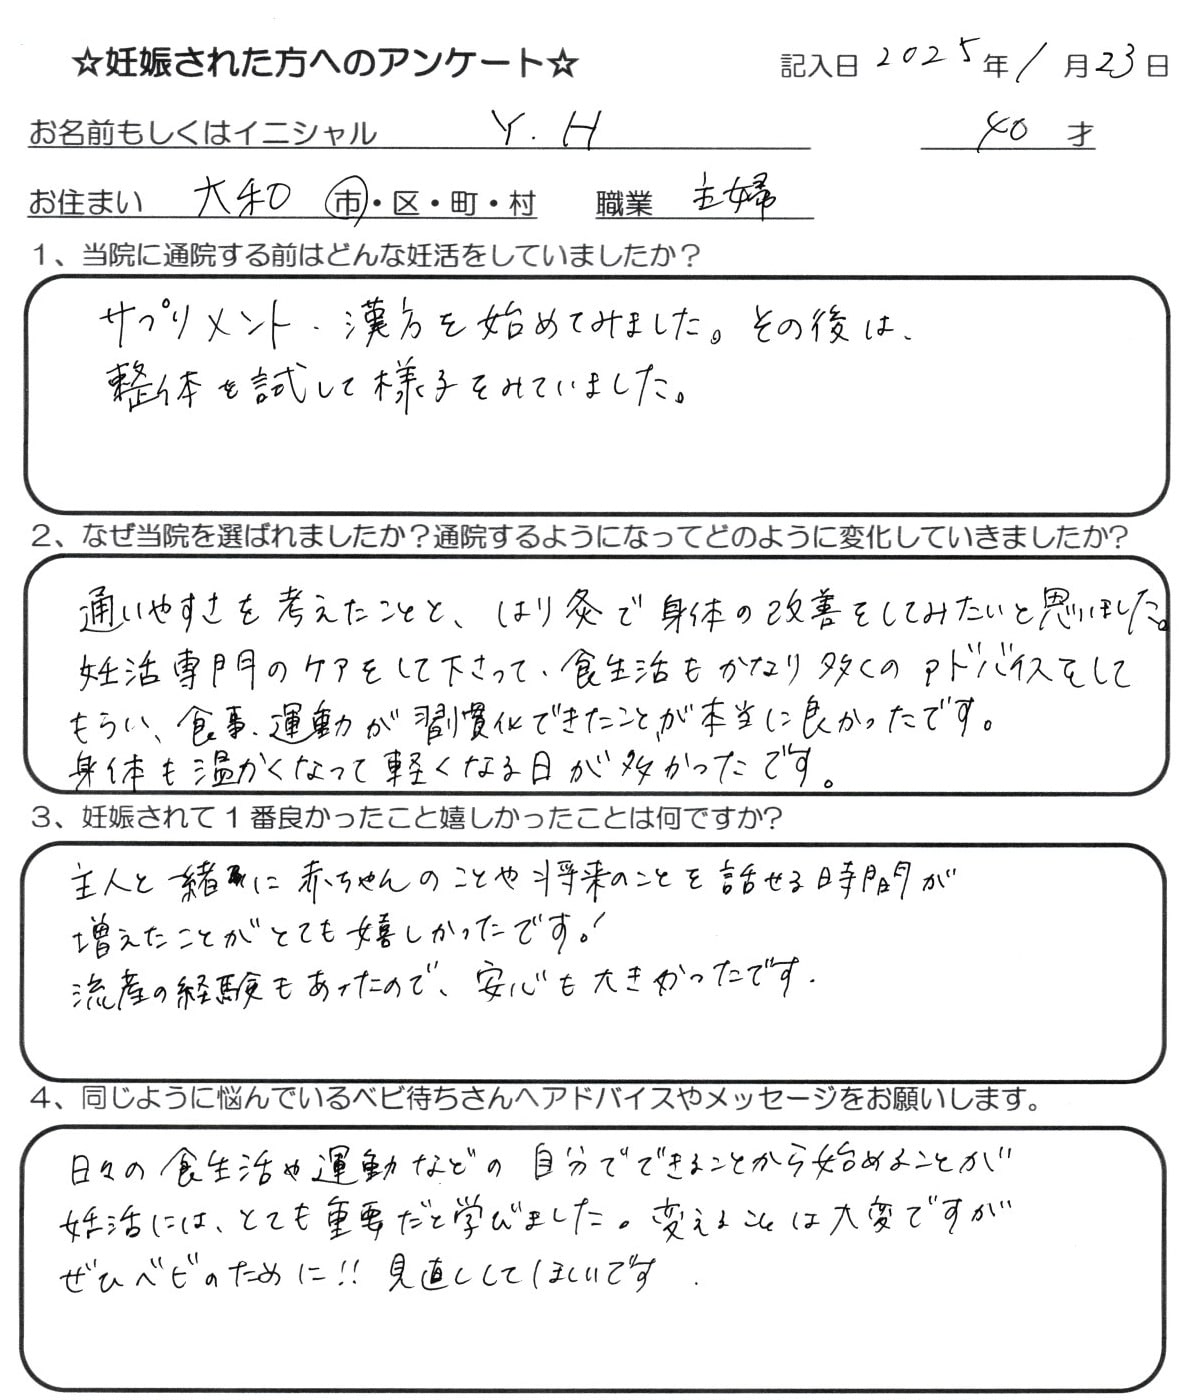 ☆妊娠された方へのアンケート☆ 記入日 2025年 1月23日
お名前もしくはイニシャル Y.H 40 才
お住まい 大和 市・区・町・村 職業 主婦
1、当院に通院する前はどんな妊活をしていましたか？
サプリメント、漢方を始めてみました。その後は、
整体を試して様子をみていました。
2、なぜ当院を選ばれましたか？通院するようになってどのように変化していきましたか?
通いやすさを考えたことと、はり灸で身体の改善をしてみたいと思いました。
妊活専門のケアをして下さって、食生活もかなり多くのアドバイスをして
もらい、食事、運動が習慣化できたことが本当に良かったです。
身体も温かくなって軽くなる日が多かったです。
3、妊娠されて1番良かったこと嬉しかったことは何ですか?
主人と緒に赤ちゃんのことや将来のことを話せる時間が
増えたことがとても嬉しかったです!
流産の経験もあったので、安心も大きかったです.
4、同じように悩んでいるベビ待ちさんへアドバイスやメッセージをお願いします。
日々の食生活や運動などの自分でできることから始めることが
妊活には、とても重要だと学びました。変えることは大変ですが
ぜひベビのために!! 見直ししてほしいです.